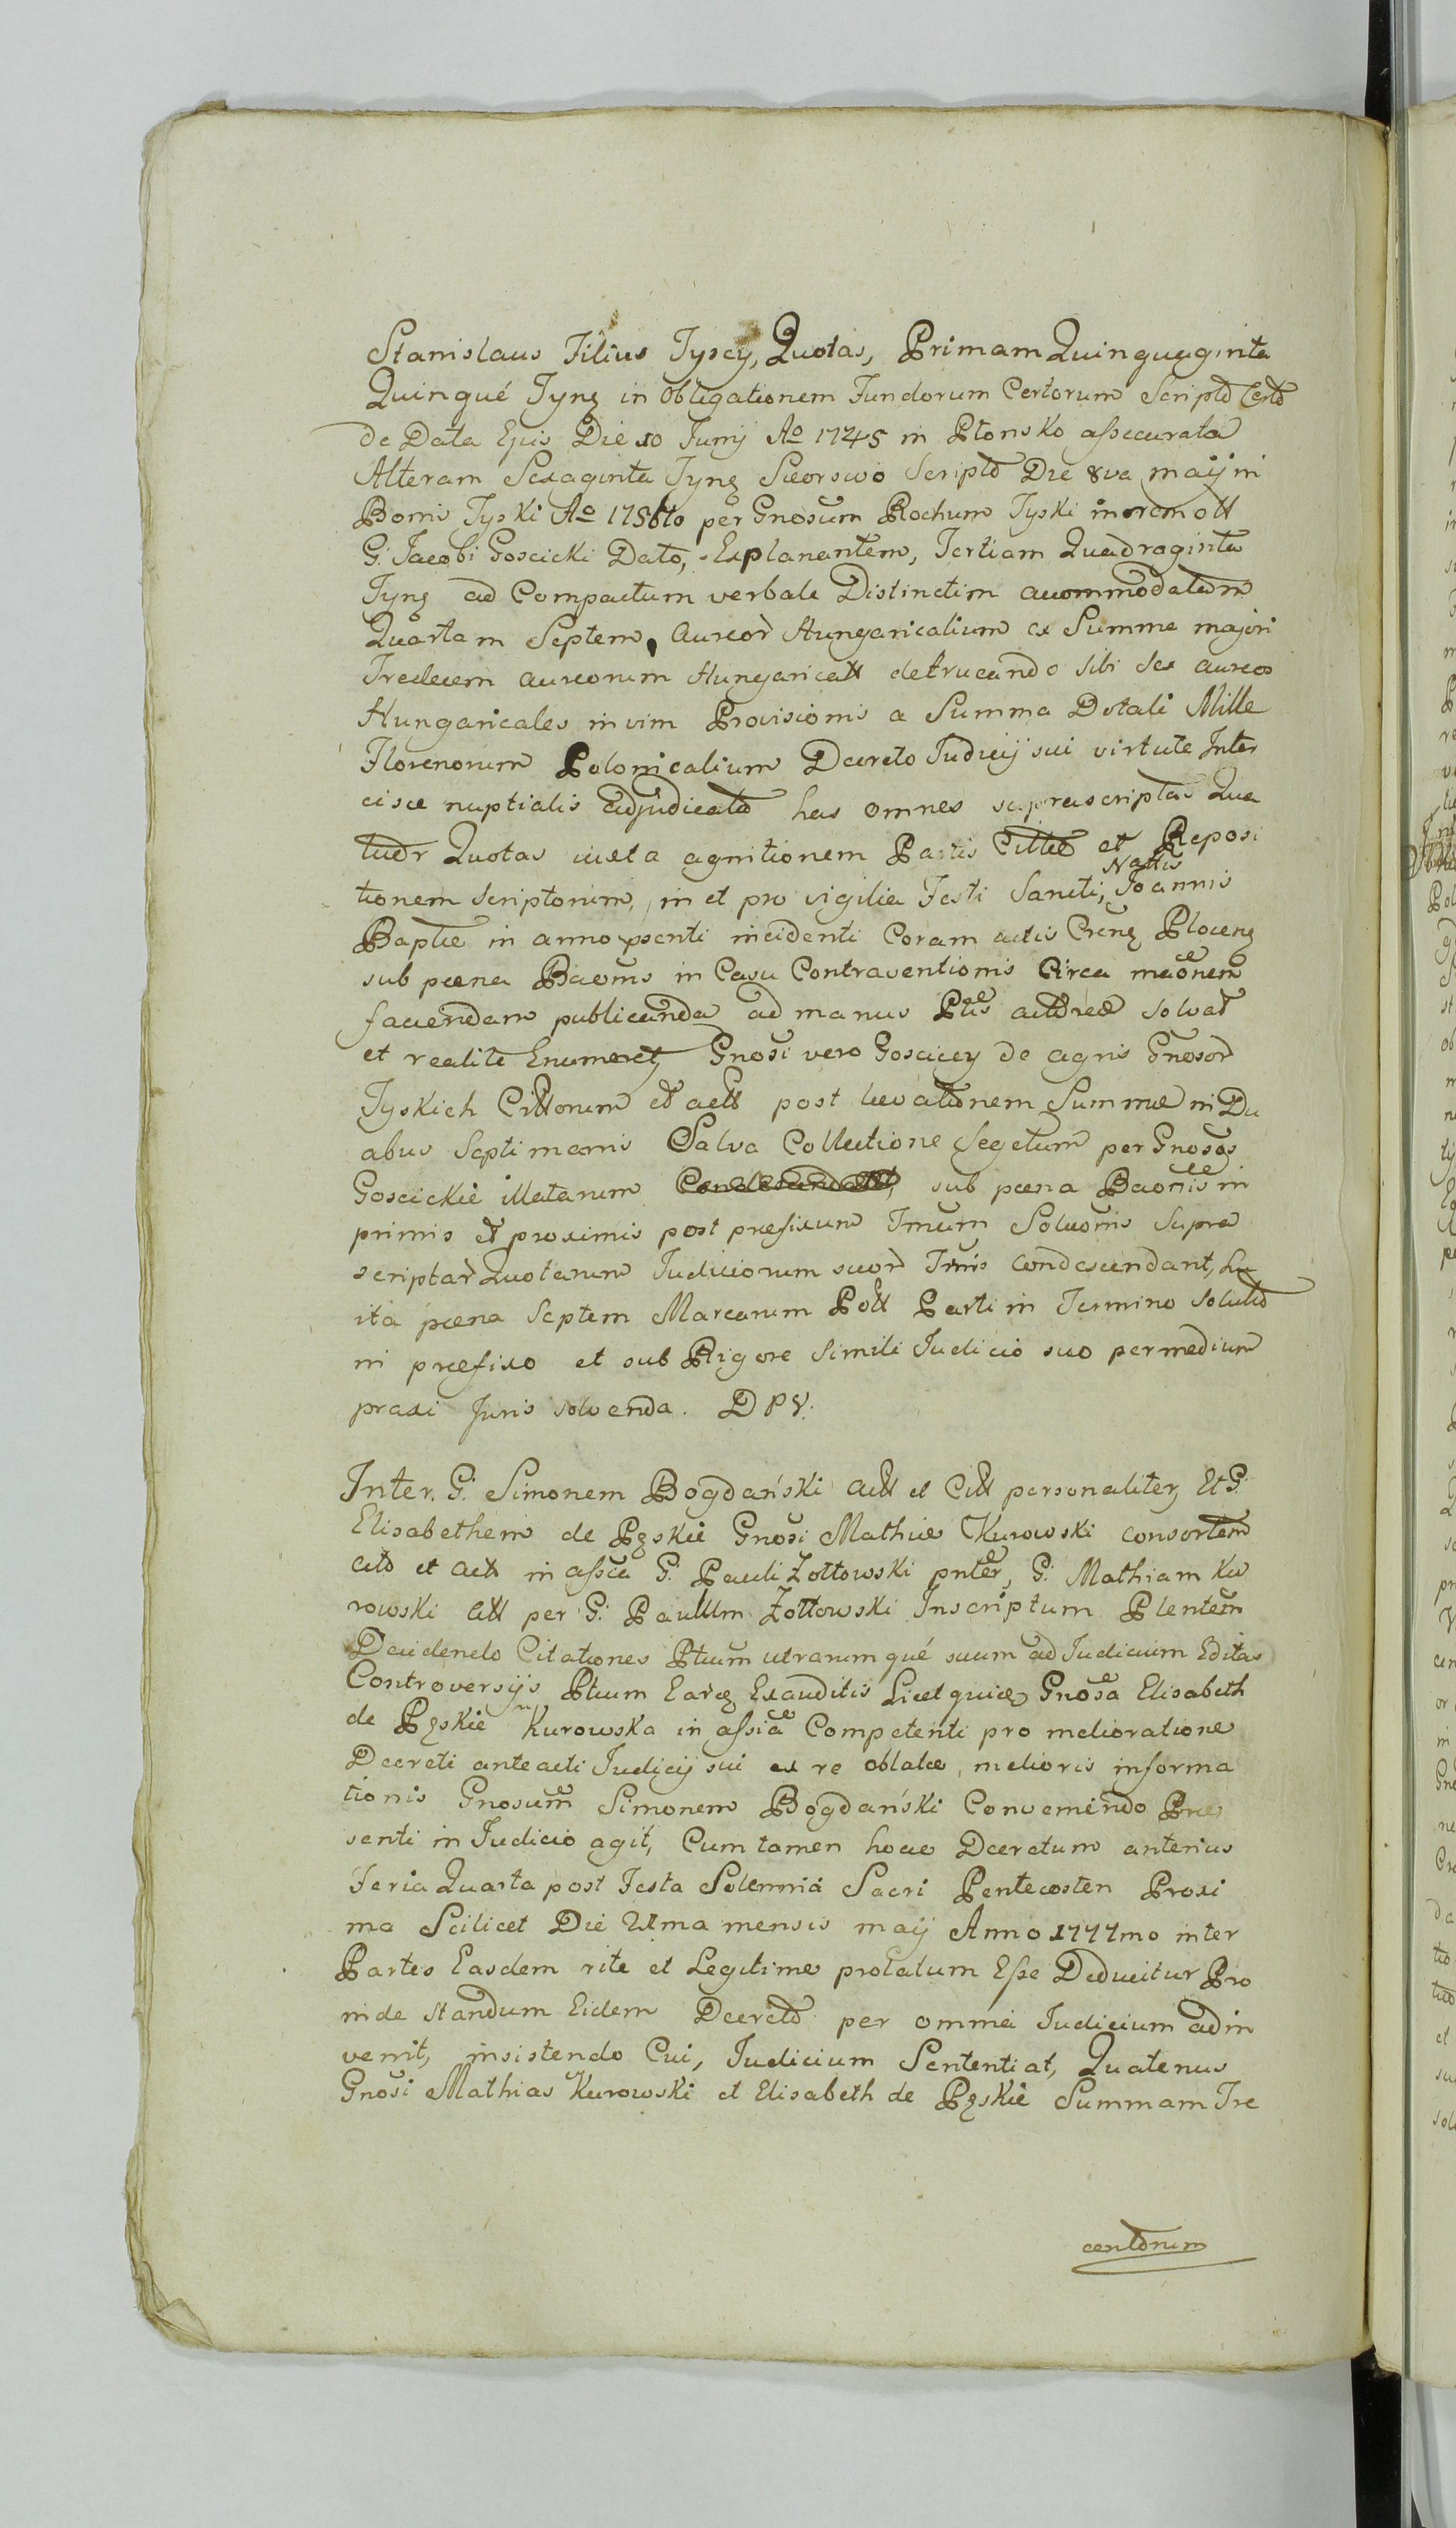 Stanislaus Filius Tyscy, Quotas, Primam Quinquaginta
Quinqué Tynf in obligationem Fundorum Certorum Scripto Certo
de Data Ejus Die 10 Junij Ao 1745 in Płonsko assecurata
Alteram Sexaginta Tynf Seorsivo Scripto Die 8va maij in
Bonis Tyski Ao 1756to per Gnosum Rochum Tyski in rem ott
G. Jacobi Goscicki Dato, Explanantem, Tertiam Quadraginta
Tynf ad Compactum verbale Distinctim accommodatam
Quartam Septem, Aureor Hungaricalium ex Summa majori
Tredecem aureorum Hungaricall detrucando sibi sex aureos
Hungaricales in vim Provisionis a Summa Dotali Mille
Florenorum Polonicalium Decreto Judicij sui virtute Inter
cisae nuptialis adjudicato has omnes supra scriptas Qua
tuor Quotas iuxta agnitionem Partis Cittae et Reposi
tionem Scriptorum, in et pro vigilia Festi Sancti, Nattis Joannis
Baptae in anno psenti incidenti Coram actis Crenẹ Plocenẹ
sub paena Baeoms in Casu Contraventionis Circa maeonem
faciendam publicanda ad manus Ptis acttreae solvat
et realite Enumeret, Gnosi vero Goscicey de agris Gnosor
Tyskich Cittorum et actt post levationem Summae in Du
abus Septimanis Salva Collectione Segetum per Gnosos
Goscickie illatarum sub paena Baeonis in
primis et proximis post praefixum Tmum Solucoms Supra
scriptar Quotarum Judiciorum suor Tmis condescendant, Lu
ita paena Septem Marcarum Poll Parti in Termino Soluto
ni praefixo et sub Rigore simili Judicio suo per medium
praxi Juris solvenda. D P V.
Inter. G. Simonem Bogdański Actt et Citt personaliter, Et G.
Elisabetham de Pęskie Gnosi Mathiae Kurowski consortem
cito et Actt in assca G. Pauli Żołtowski pnter, G. Mathiam Ku
rowski Citt per G. Paullum Żołtowski Inscriptum Plentem
Decidendo Citationes Ptium utrarumqué suum ad Judicium Editas
Controversijs Ptium Earẹ Exauditis Licet quiẹ Gnosa Elisabeth
de Pęskie Kurowska in assia Competenti pro melioratione
Decreti anteacti Judicij sui ex re oblatae, melioris informa
tionis Gnosum Simonem Bogdański Conveniendo Prae
senti in Judicio agit, Cum tamen hocce Decretum anterius
Feria Quarta post Festa Solemnia Sacri Pentecosten Proxi
ma Scilicet Die 21ma mensis maij Anno 1777mo inter
Partes Easdem rite et Legitime prolatum Esse Deducitur Pro
inde standum Eidem Decreto per omnia Judicium adin
venit, insistendo Cui, Judicium Sententiat, Quatenus
Gnosi Mathias Kurowski et Elisabeth de Pęskie Summam Tre
centorum